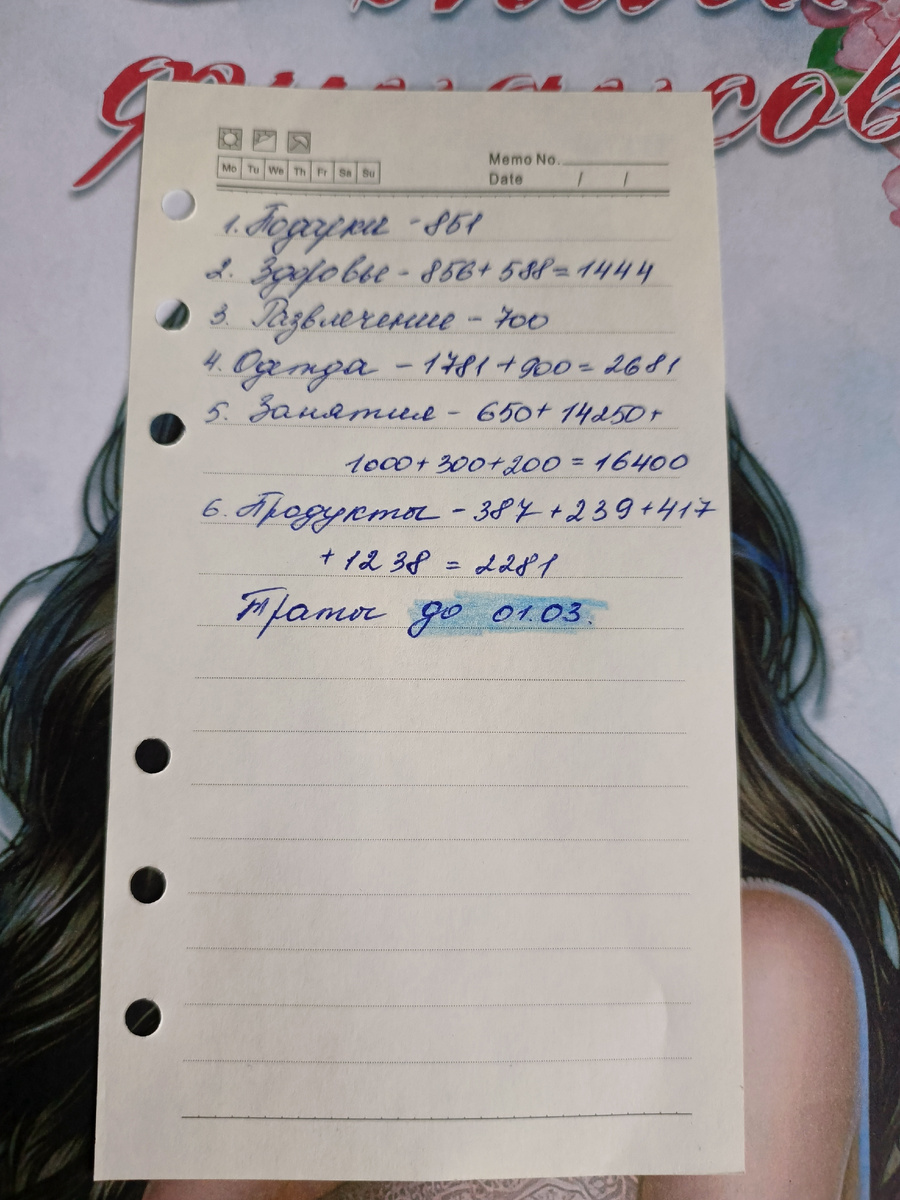 финансов
Memo No.
Mo Tu We Th Fr Sa Su
Date / /
1. Подарки - 851
2. Здоровье - 856 + 588 = 1444
3. Развлечение - 700
4. Одежда - 1781 + 900 = 2681
5. Занятия - 650 + 14250 +
1000 + 300 + 200 = 16400
6. Продукты - 387 + 239 + 417
+ 1238 = 2281
Траты до 01.03.